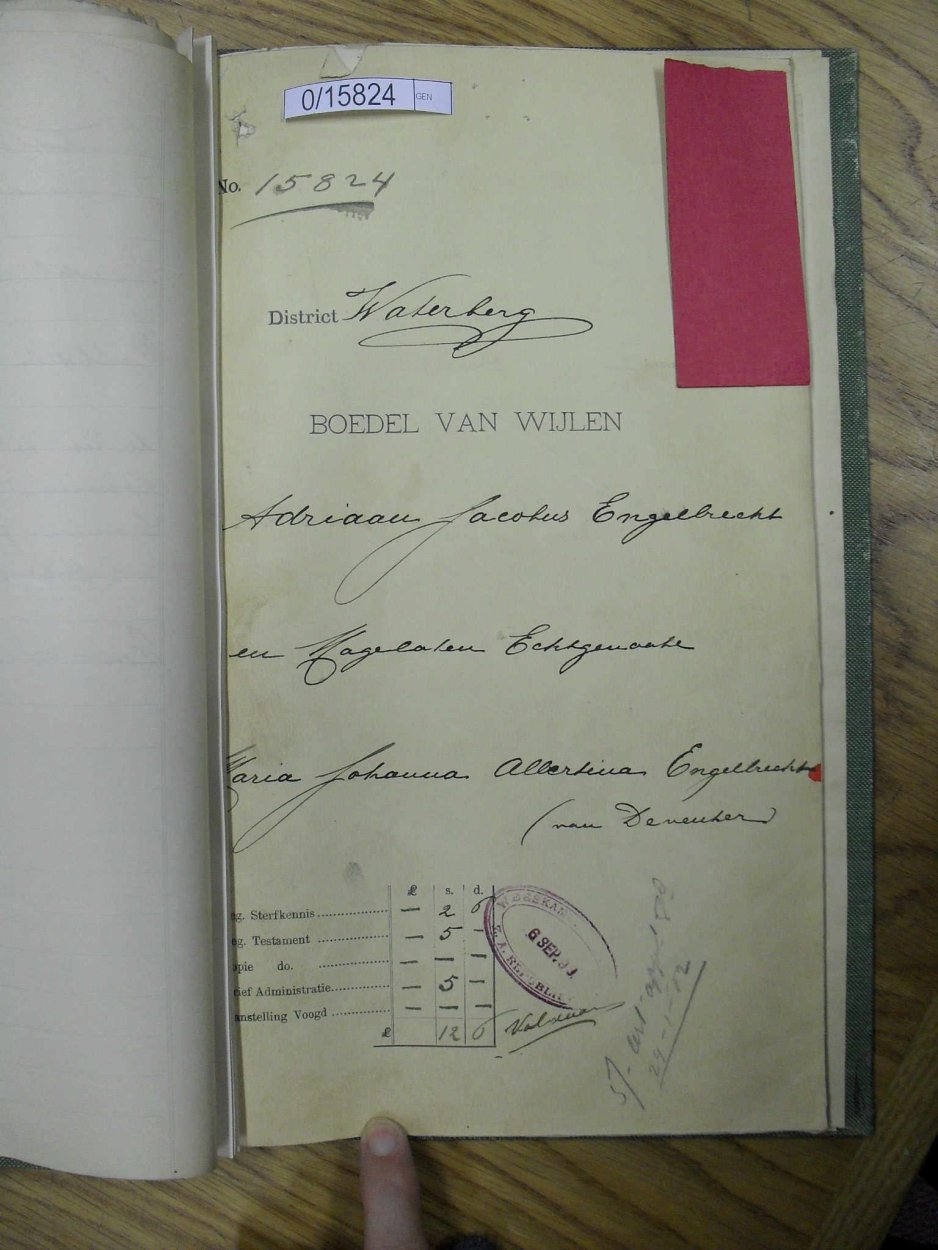 0/15824 GEN
No. 15824
District Waterberg
BOEDEL VAN WIJLEN
Adriaan Jacobus Engelbrecht
en Nagelaten Echtgenoote
Maria Johanna Allertina Engelbrecht
(van Deventer)
£ s. d.
eg. Sterfkennis — 2 6
eg. Testament — 5 —
opie do. — — —
rief Administratie — 5 —
anstelling Voogd — — —
£ 12 6
WEESKA
6 SEP.
Z. A. REPUBLIEK
29-1-12